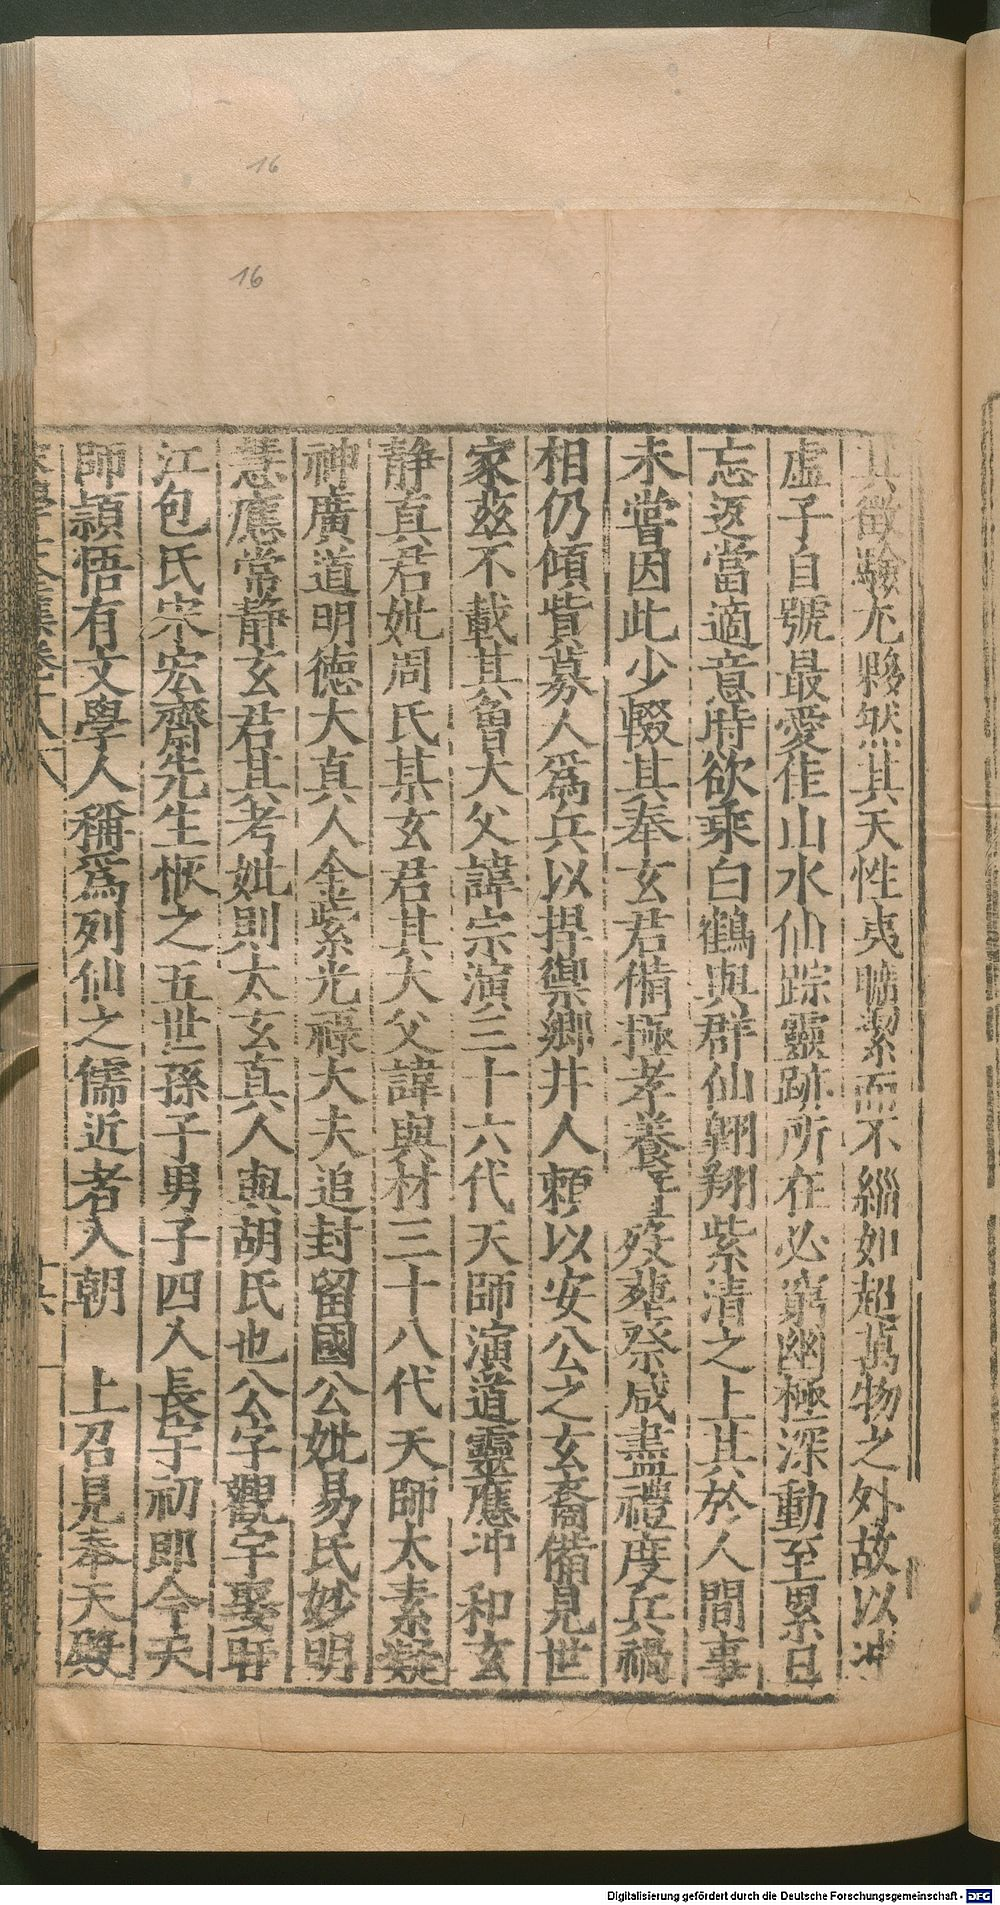 16
16
其徵驗尤夥然其天性夷曠潔而不緇如超萬物之外故以冲
虛子自號最愛佳山水仙踪靈跡所在必窮幽極深動至累日
忘返當適意時欲乘白鶴與群仙翱翔紫清之上其於人間事
未嘗因此少輟其奉玄君備極孝養殁葬祭咸盡禮度兵禍
相仍傾貲募人爲兵以捍禦鄉井人頼以安公之玄裔備見世
家兹不載其曾大父諱宗演三十六代天師演道靈應冲和玄
静真君妣周氏某玄君其大父諱與材三十八代天師太素凝
神廣道明德大真人金紫光祿大夫追封留國公妣易氏妙明
慧應常静玄君其考妣則太玄真人與胡氏也公字觀宇娶旴
江包氏宋宏齋先生恢之五世孫子男子四人長宇初即今天
師頴悟有文學人稱爲列仙之儒近者入朝　上召見奉天殿
Digitalisierung gefördert durch die Deutsche Forschungsgemeinschaft - DFG